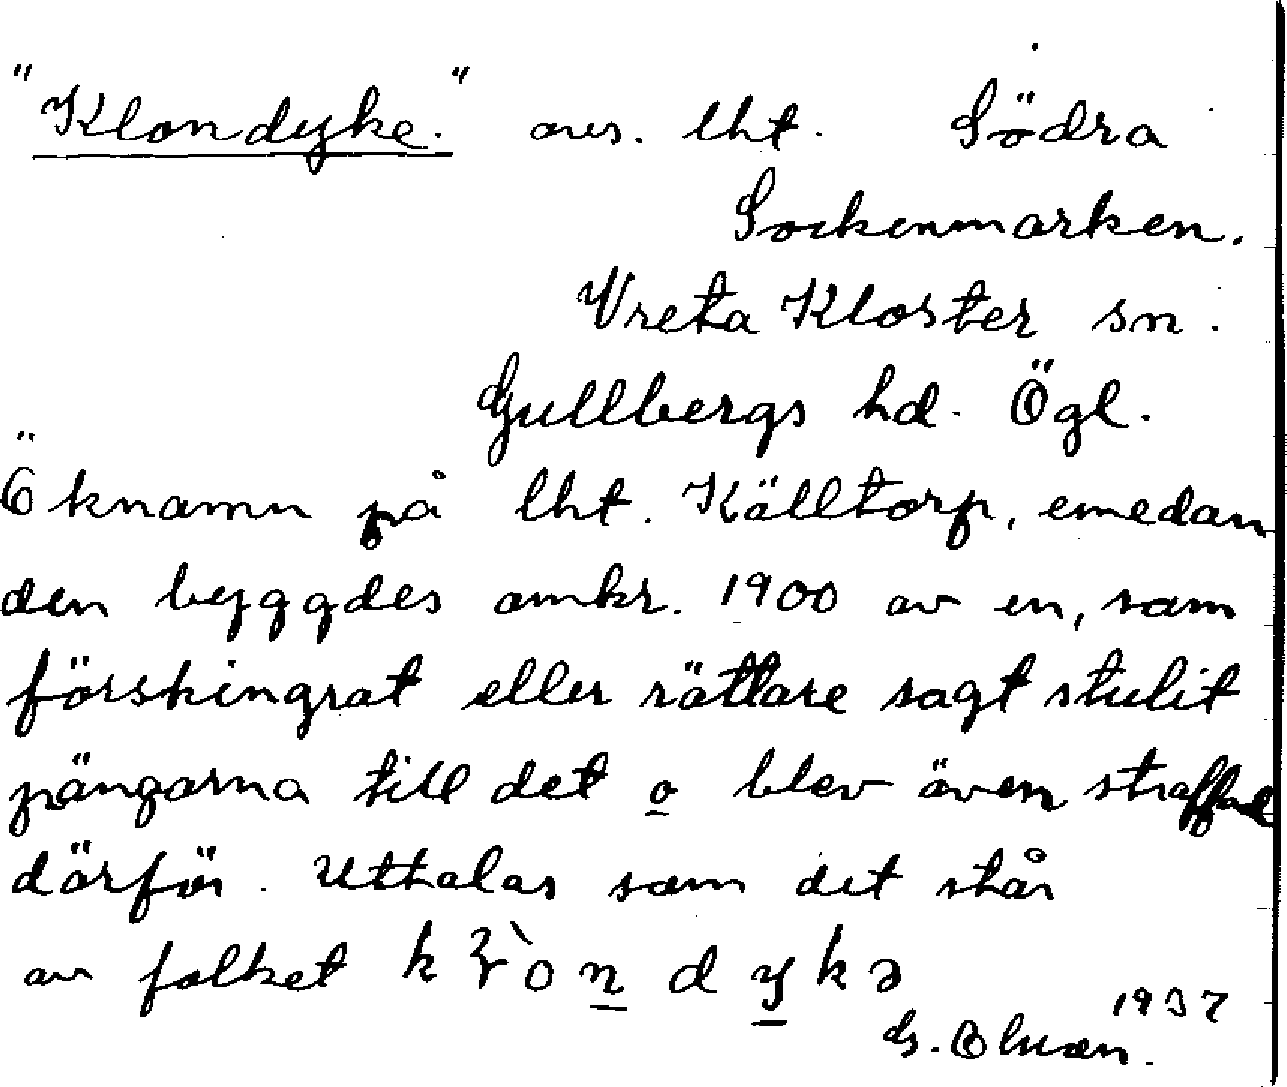 "Klondyke." avs. lht. Södra
Sockenmarken.
Vreta Kloster sn.
Gullbergs hd. Ögl.
Öknamn på lht. Källtorp, emedan
den byggdes omkr. 1900 av en, som
förskingrat eller rättare sagt stulit
pängarna till det o blev även straffad
därför. Uttalas som det står
av folket
1937